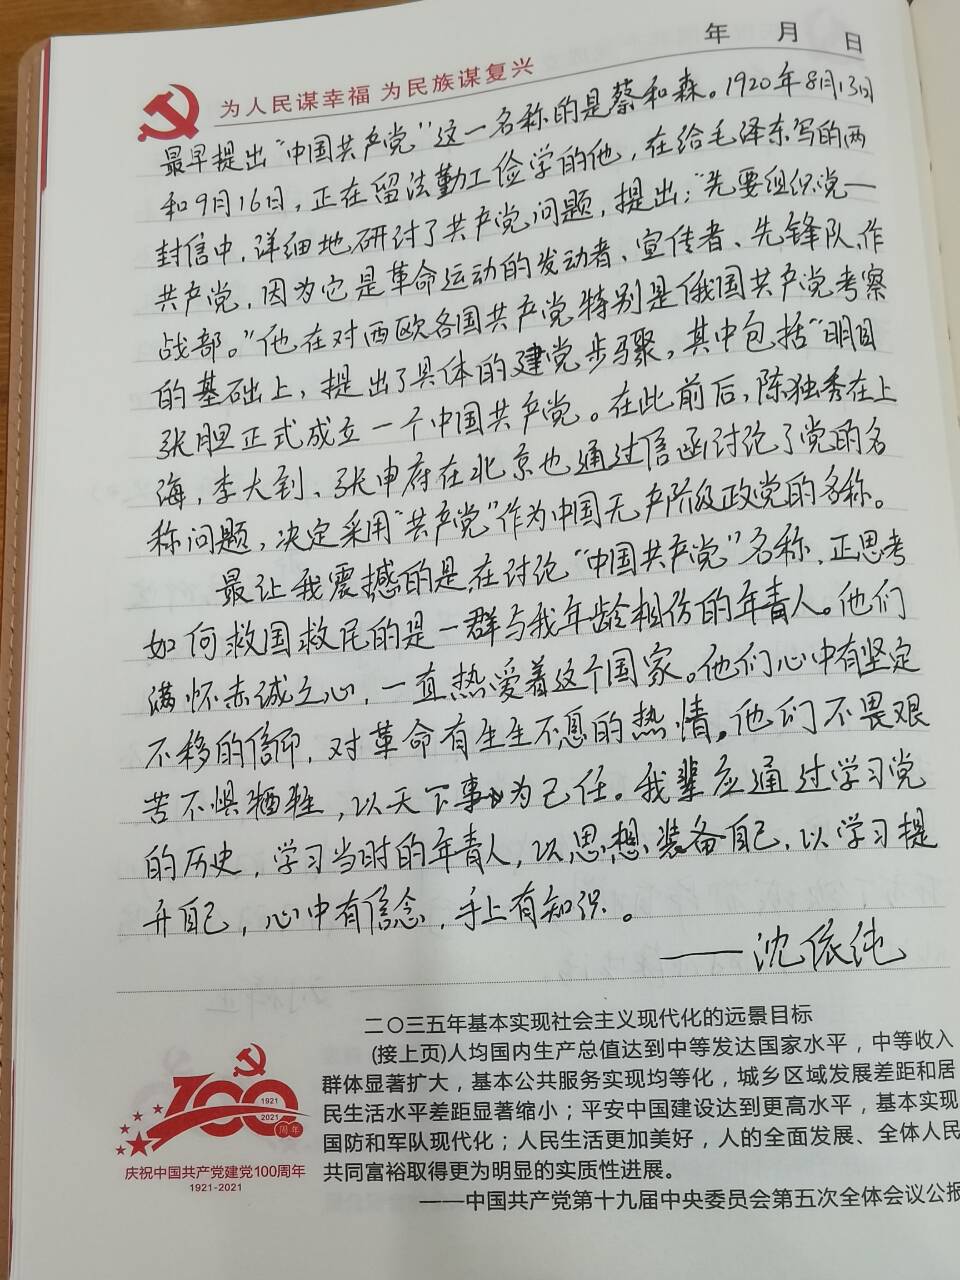 年 月 日
为人民谋幸福 为民族谋复兴
最早提出“中国共产党”这一名称的是蔡和森。1920年8月13日
和9月16日，正在留法勤工俭学的他，在给毛泽东写的两
封信中，详细地研讨了共产党问题，提出：“先要组织党——
共产党，因为它是革命运动的发动者、宣传者、先锋队、作
战部。”他在对西欧各国共产党特别是俄国共产党考察
的基础上，提出了具体的建党步骤，其中包括“明目
张胆正式成立一个中国共产党。在此前后，陈独秀在上
海，李大钊、张申府在北京也通过信函讨论了党的名
称问题，决定采用“共产党”作为中国无产阶级政党的名称。
最让我震撼的是，在讨论“中国共产党”名称，正思考
如何救国救民的是一群与我年龄相仿的年青人。他们
满怀赤诚之心，一直热爱着这个国家。他们心中有坚定
不移的信仰，对革命有生生不息的热情。他们不畏艰
苦不惧牺牲，以天下事为己任。我辈应通过学习党
的历史，学习当时的年青人，以思想装备自己，以学习提
升自己，心中有信念，手上有知识。
——沈依纯
二〇三五年基本实现社会主义现代化的远景目标
(接上页)人均国内生产总值达到中等发达国家水平，中等收入
群体显著扩大，基本公共服务实现均等化，城乡区域发展差距和居
民生活水平差距显著缩小；平安中国建设达到更高水平，基本实现
国防和军队现代化；人民生活更加美好，人的全面发展、全体人民
共同富裕取得更为明显的实质性进展。
——中国共产党第十九届中央委员会第五次全体会议公报
100
1921
2021
周年
庆祝中国共产党建党100周年
1921-2021